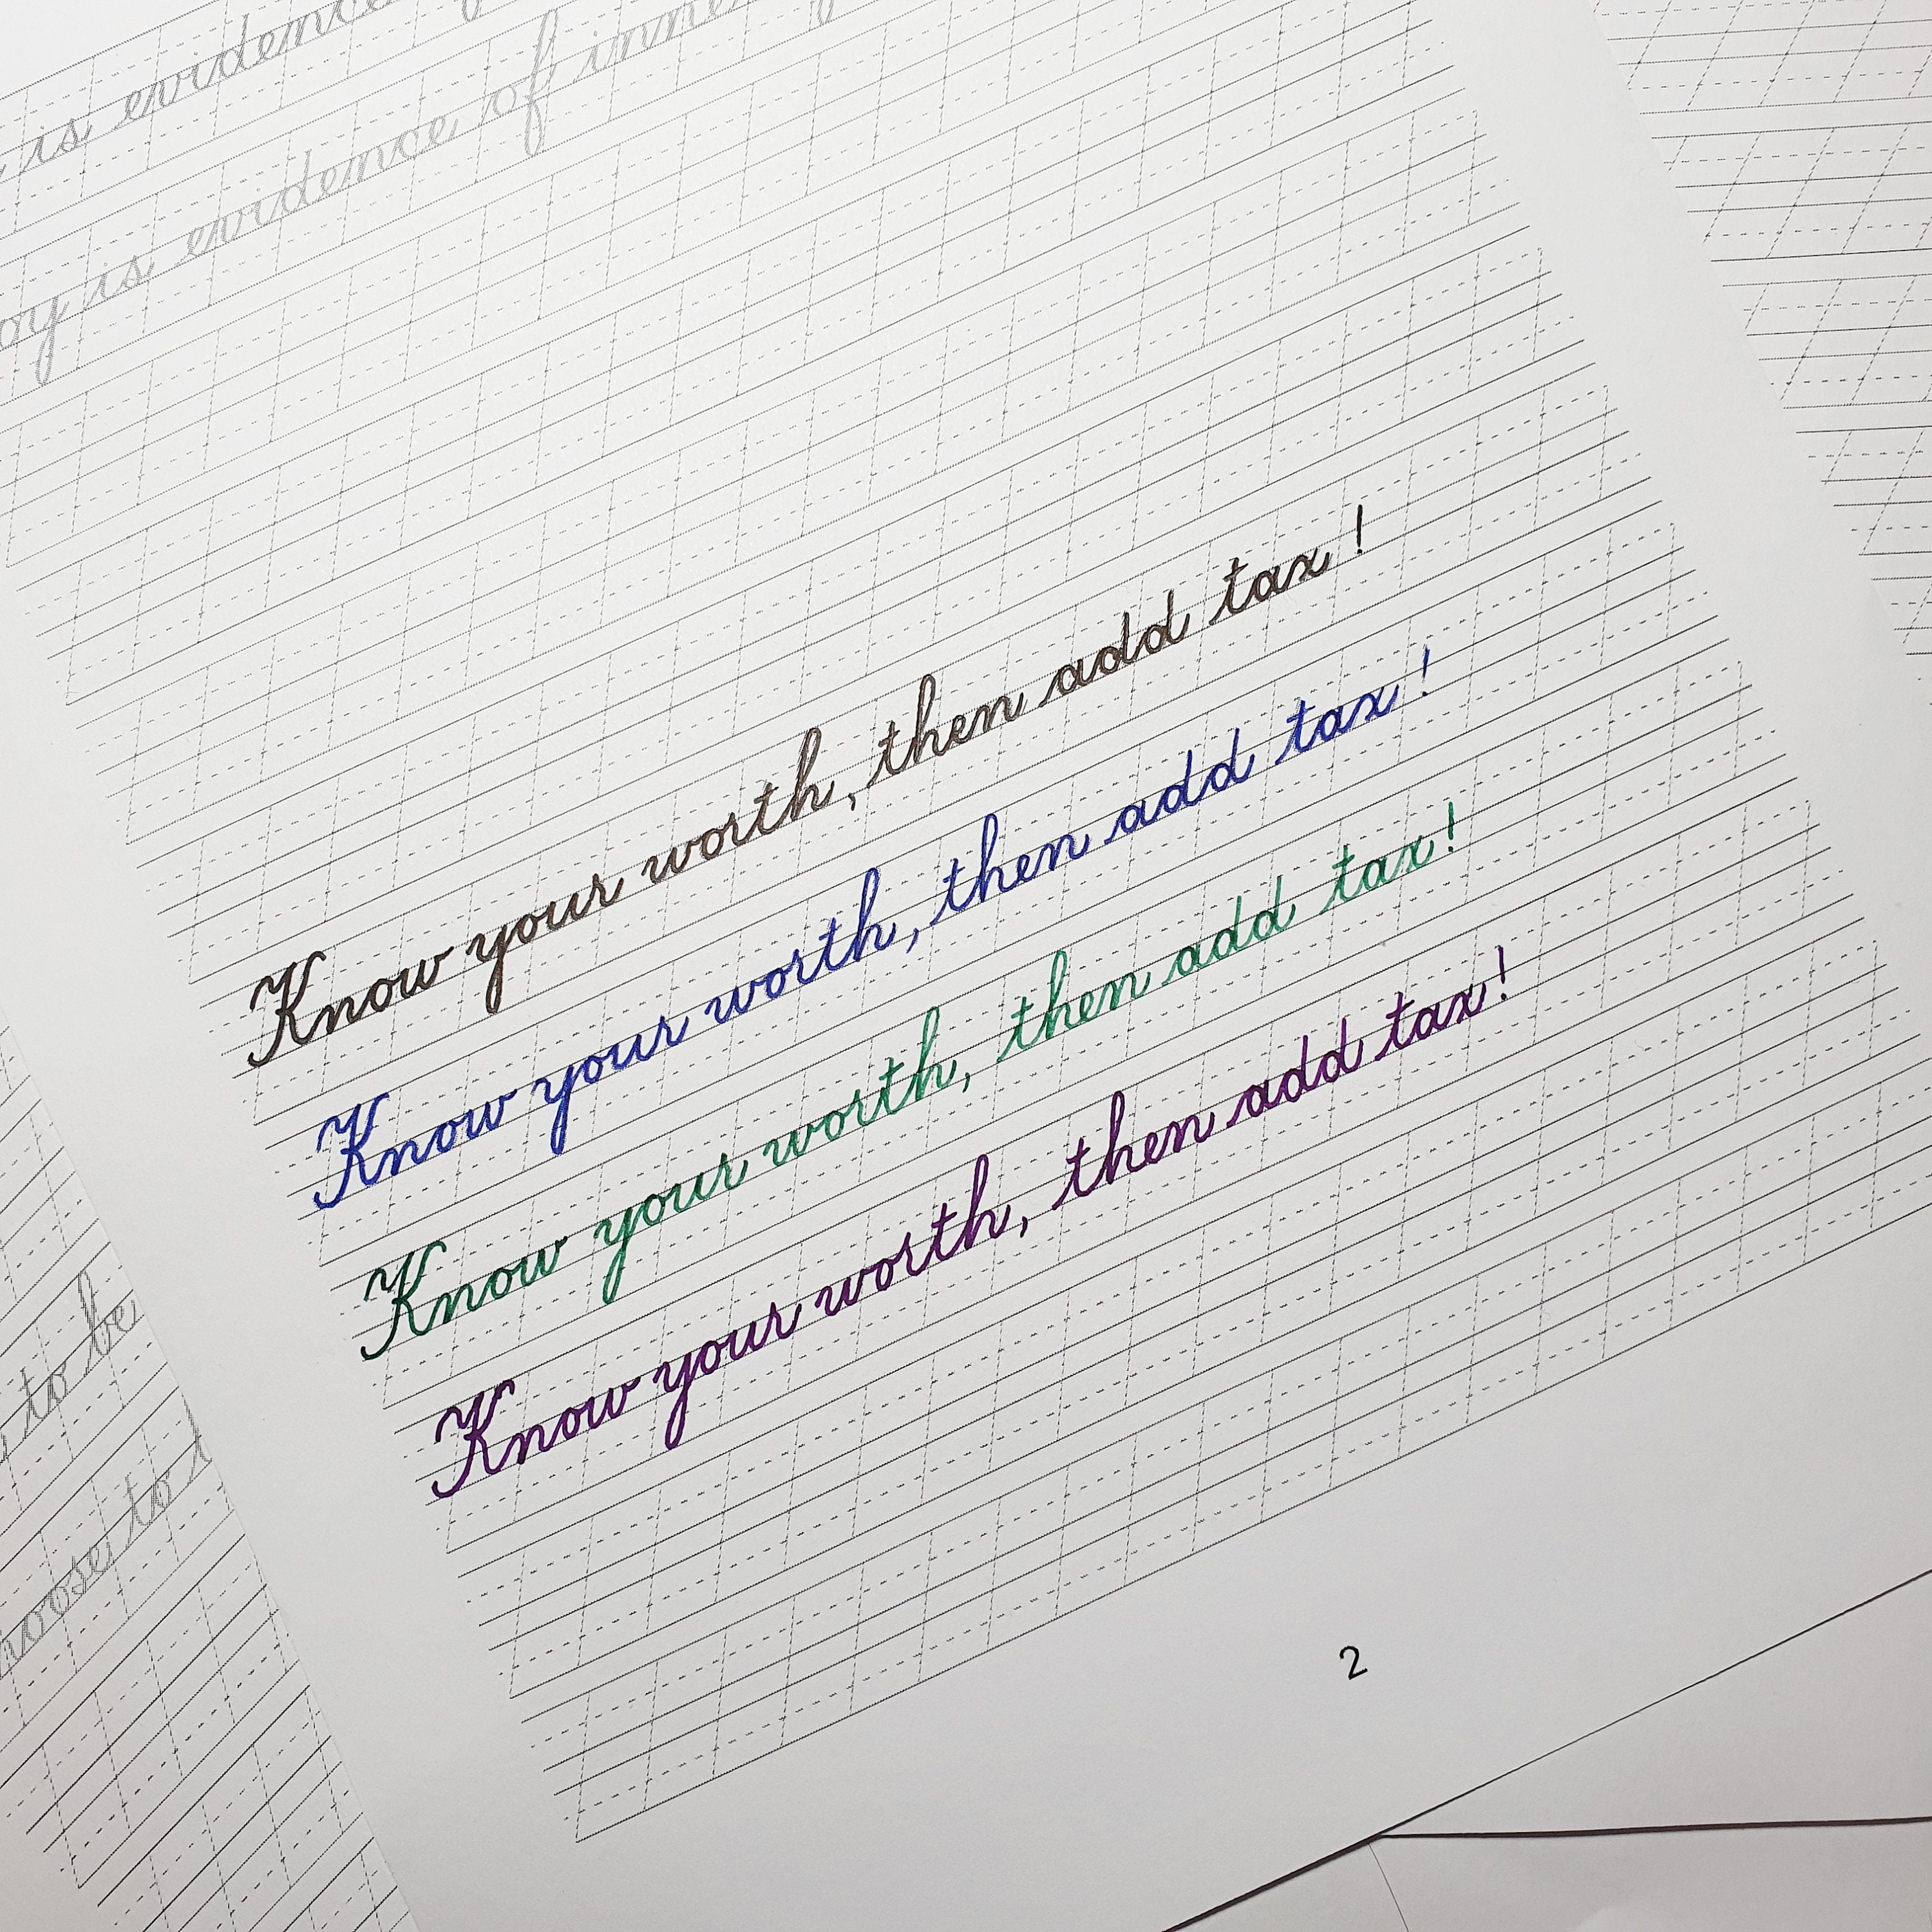 is evidence
oy is evidence of inne
Know your worth, then add tax !
Know your worth, then add tax !
Know your worth, then add tax!
Know your worth, then add tax!
to be
oose to
2